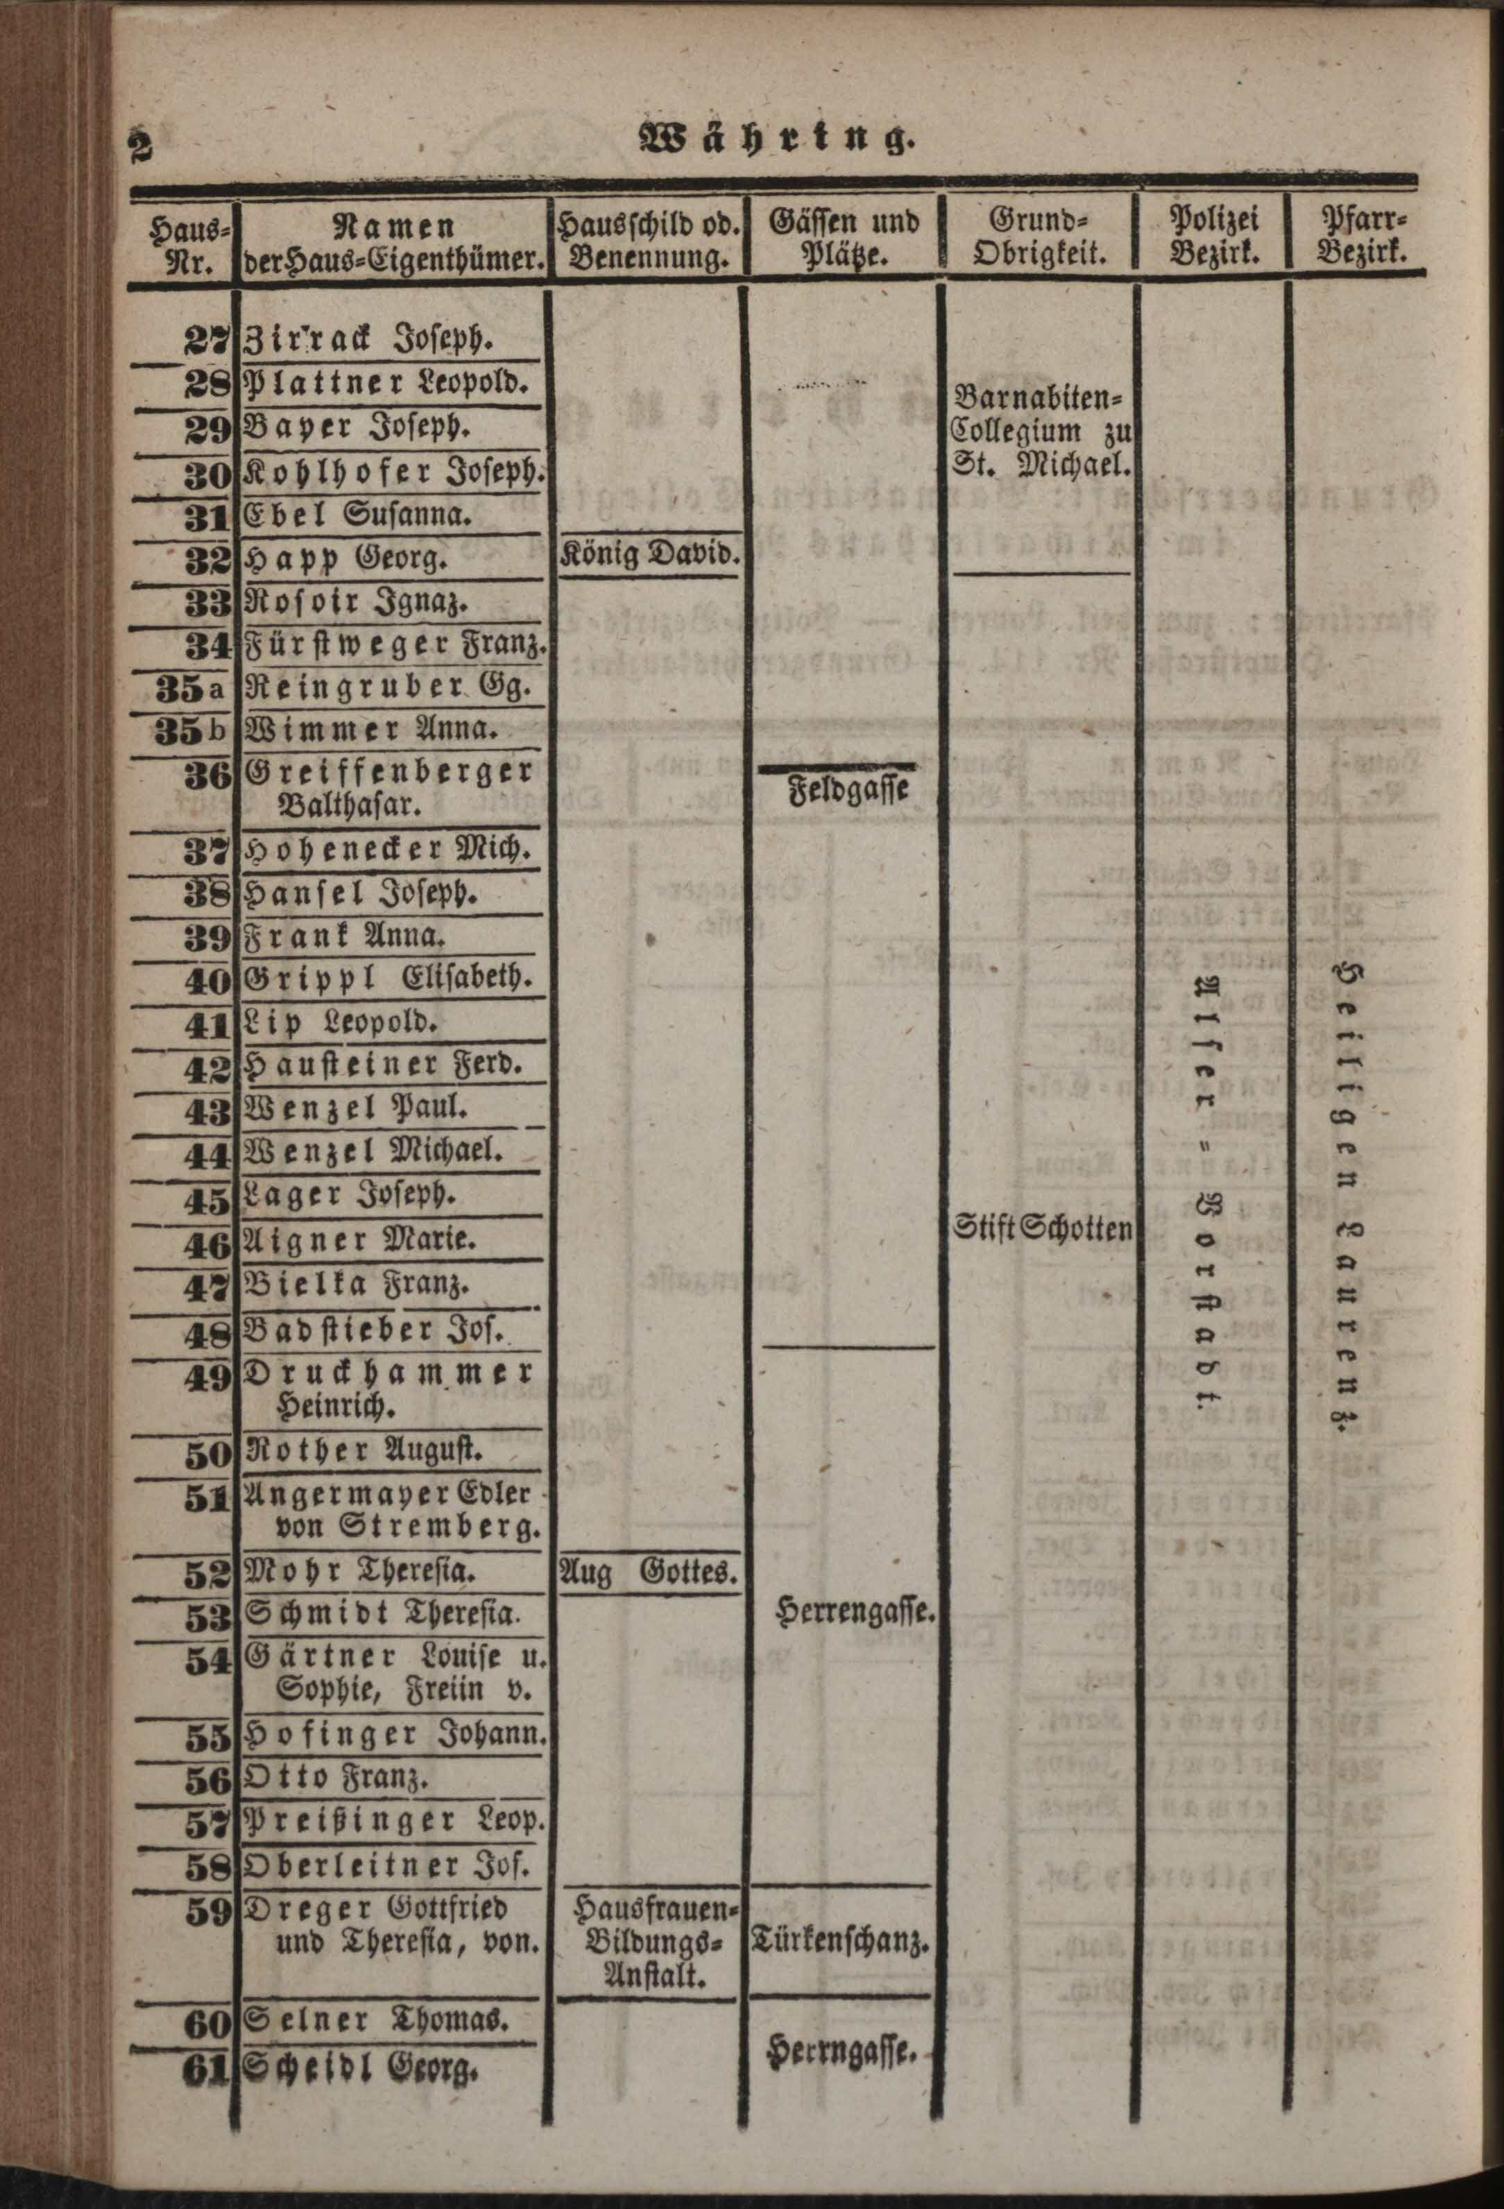 2
Währing.
Haus-
Nr.
Namen
der Haus-Eigenthümer.
Hausschild od.
Benennung.
Gässen und
Plätze.
Grund-
Obrigkeit.
Polizei
Bezirk.
Pfarr-
Bezirk.
27 Zirrack Joseph.
28 Plattner Leopold.
29 Bayer Joseph.
30 Kohlhofer Joseph.
31 Ebel Susanna.
Barnabiten-
Collegium zu
St. Michael.
32 Happ Georg. König David.
33 Rosoir Ignaz.
34 Fürstweger Franz.
35a Reingruber Gg.
35b Wimmer Anna.
36 Greiffenberger
Balthasar.
Feldgasse
37 Hohenecker Mich.
38 Hansel Joseph.
39 Frank Anna.
40 Grippl Elisabeth.
41 Lip Leopold.
42 Hausteiner Ferd.
43 Wenzel Paul.
44 Wenzel Michael.
45 Lager Joseph.
46 Aigner Marie.
Stift Schotten
Alser-Vorstadt.
Heiligen Laurenz.
47 Bielka Franz.
48 Badstieber Jos.
49 Druckhammer
Heinrich.
50 Rother August.
51 Angermayer Edler
von Stremberg.
52 Mohr Theresia. Aug Gottes.
53 Schmidt Theresia. Herrengasse.
54 Gärtner Louise u.
Sophie, Freiin v.
55 Hofinger Johann.
56 Otto Franz.
57 Preißinger Leop.
58 Oberleitner Jos.
59 Dreger Gottfried
und Theresia, von.
Hausfrauen-
Bildungs-
Anstalt.
Türkenschanz.
60 Selner Thomas.
61 Scheidl Georg.
Herrngasse.